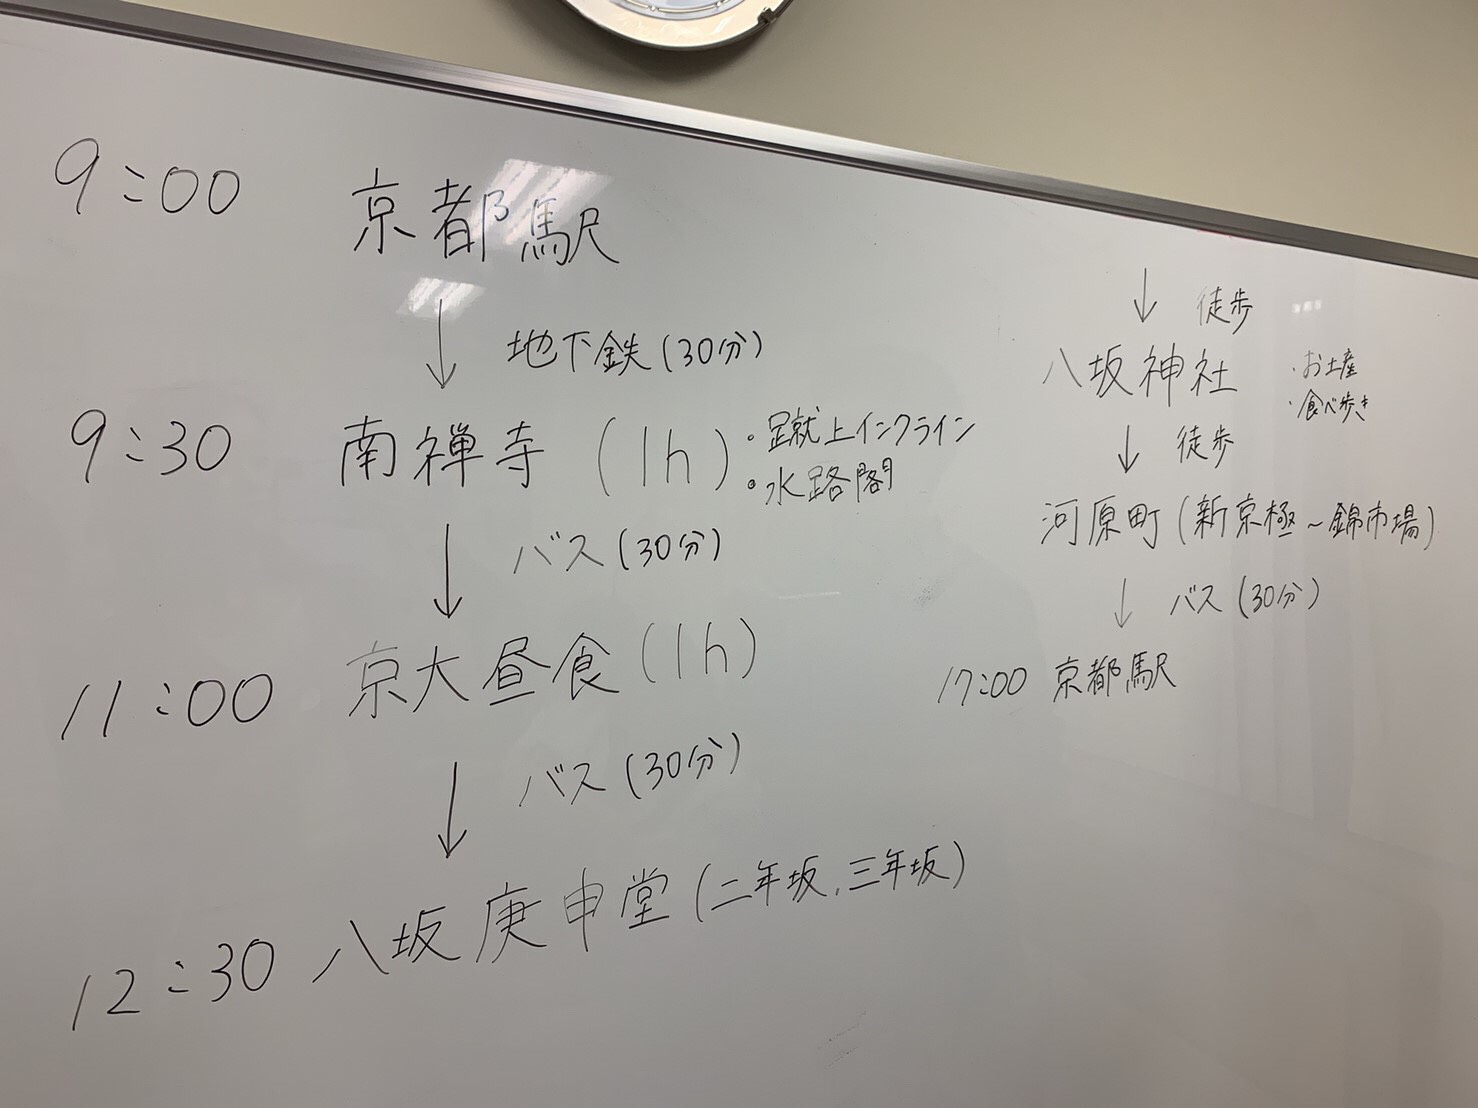 9:00 京都駅
↓ 地下鉄(30分)
9:30 南禅寺 (1h)
・蹴上インクライン
・水路閣
↓ バス(30分)
11:00 京大昼食(1h)
↓ バス(30分)
12:30 八坂庚申堂(二年坂,三年坂)
↓ 徒歩
八坂神社
・お土産
・食べ歩き
↓ 徒歩
河原町(新京極~錦市場)
↓ バス(30分)
17:00 京都駅